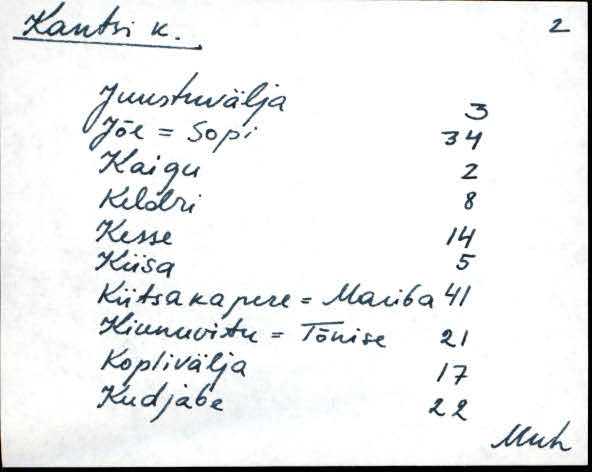 Kantsi k. 2
Juustuvälja 3
Jõe = Sopi 34
Kaigu 2
Keldri 8
Kesse 14
Kiisa 5
Kiitsakapere = Mariba 41
Kinnuvitu = Tõnise 21
Koplivälja 17
Kudjabe 22
Muh